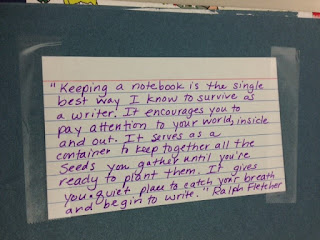 "Keeping a notebook is the single
best way I know to survive as
a writer. It encourages you to
pay attention to your world, inside
and out. It serves as a
container to keep together all the
seeds you gather until you're
ready to plant them. It gives
you a quiet place to catch your breath
and begin to write." Ralph Fletcher